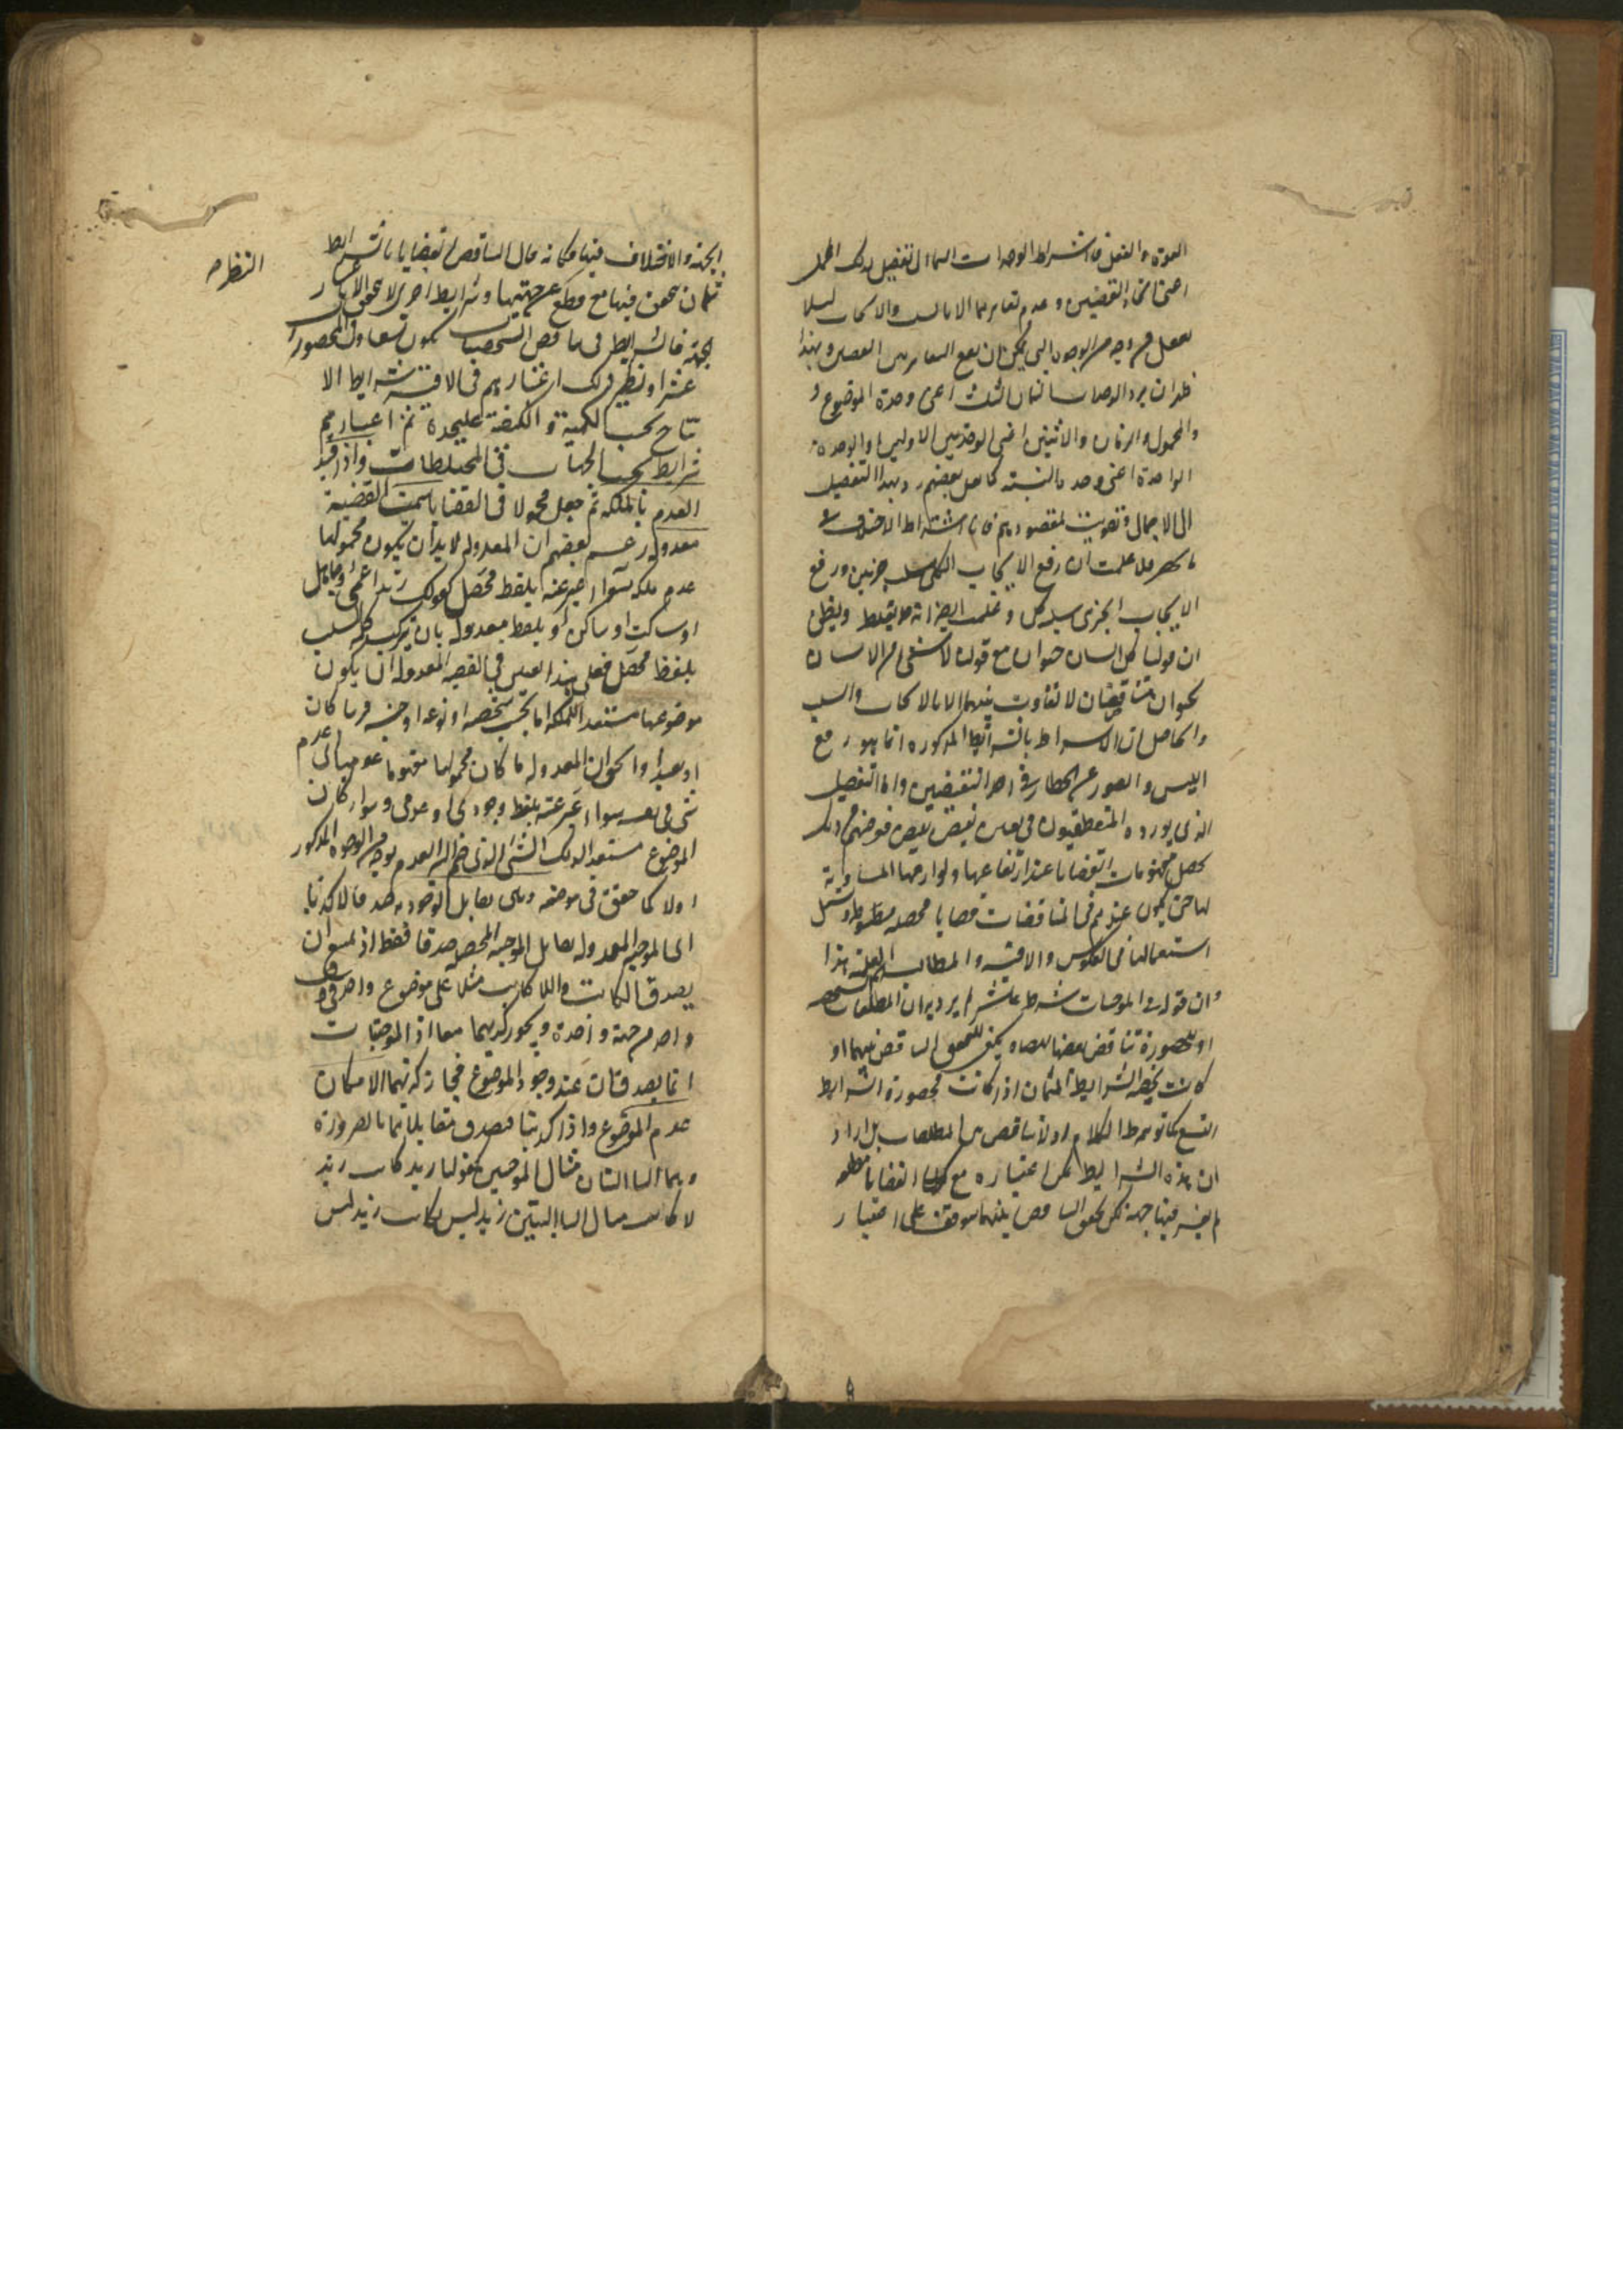 القوة والفعل فاشتراط الوحدات الثماني تفصيل لذلك المجمل
اعنى اتحاد القضيتين وعدم تغايرهما الا بالسلب والايجاب لئلا
يغفل من وجه من الوجوه التي يمكن ان يقع التغاير بين القضيتين وبهذا
ظهر ان يرد الوحدات الثمان الى ثلث اعنى وحدة الموضوع و
والمحمول والزمان والاثنين اعنى الوحدتين الاوليين والوحدة
الواحدة اعنى وحدة النسبة كما فعل بعضهم رد بهذا التفصيل
الى الاجمال وتفويت لمقصودهم فاما اشتراط الاختلاف في
فلما علمت ان رفع الايجاب الكلي سلب جزئي ورفع
الايجاب الجزئي سلب كلي وعلمت ايضا انه قد يغلط ويظن
ان قولنا كل انسان حيوان مع قولنا لا شىء من الانسان
بحيوان متناقضان لا تفاوت بينهما الا بالايجاب والسلب
والحاصل ان الاشتراط بالشرائط المذكورة انما هو رفع
اللبس والصون عن الخطا في اخذ النقيضين واما التفصيل
الذي يورده المنطقيون في تعيين نقيض نقيض فغرضهم من ذلك
تحصيل مفهومات القضايا عند ارتفاعها ولوازمها المساوية
لها حتى يكون عندهم في المناقضات قضايا محصلة مضبوطة ويسهل
استعمالها في العكوس والاقيسة والمطالب العلمية هذا
وان قوله في الموجهات شرط عاشر لم يرد به ان المطلقات الشخصية
او المحصورة تناقض بعضها بعضا ويكفي لتحقق التناقض بينهما او
كانت شخصية الشرايط الثمان او اذا كانت محصورة الشرايط
التسع كما توهم هذا الكلام اذ لا تناقض بين المطلقات بل اراد
ان هذه الشرايط يمكن اعتباره مع كون القضايا مطلقة
لم يعتبر فيها جهة لكن تحقق التناقض بينهما موقوف على اعتبار
الجهة والاختلاف فيها فكانه قال التناقض القضايا بالشرايط
ثمان تتحقق فيها مع قطع عن جهتها وشرايط اخرى لا تتحقق الا باعتبار
النظر صح
الجهة فالشرايط في تناقض الشخصيات يكون تسعا وفي المحصورات
عشرا ونظير ذلك اعتبارهم في الاقيسة شرايط الا
نتاج بحسب الكمية والكيفية عليحدة ثم اعتبارهم
شرايط بحسب الجهات في المختلطات واذا قيد
العدم بالملكة ثم جعل محمولا في القضايا سميت القضية
معدولة زعم بعضهم ان المعدولة لا بد ان يكون محمولها
عدم ملكة سواء عبر عنه بلفظ محصل كقولك زيد اعمى وجاهل
او ساكت او ساكن او بلفظ معدول بان تركب كلمة السلب
بلفظ محصل فعلى هذا يعتبر في القضية المعدولة ان يكون
موضوعها مستعدا للملكة اما بحسب شخصه او نوعه او جنسه قريبا كان
او بعيدا والحق ان المعدولة ما كان محمولها مفهوما عدميا الى عدم
شىء في نفسه سواء عبر عنه بلفظ وجودي او عدمي وسواء كان
الموضوع مستعدا لذلك الشىء الذي ضم اليه العدم بوجه من الوجوه المذكور
اولا كما حقق في موضعه وهى تقابل الوجودية صدقا لا كذبا
اى الموجبة المعدولة تقابل الموجبة المحصلة صدقا فقط اذ لا يمكن ان
يصدق الكاتب واللاكاتب مثلا على موضوع واحد في وقت
واحد من جهة واحدة ويجوز كذبهما معا اذ الموجبات
انما يصدقان عند وجود الموضوع فيجاز كذبهما لامكان
عدم الموضوع واذا كذبتا فصدق مقابلاتهما بالضرورة
وهما السالبتان مثال الموجبتين كقولنا زيد كاتب زيد
لا كاتب مثال السالبتين زيد ليس بكاتب زيد ليس